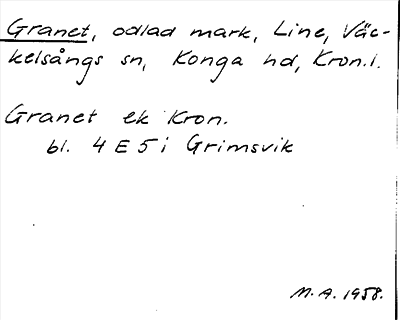 Granet, odlad mark, Line, Väc-
kelsångs sn, Konga hd, Kron.l.
Granet ek Kron.
bl. 4 E 5 i Grimsvik
M.A. 1958.